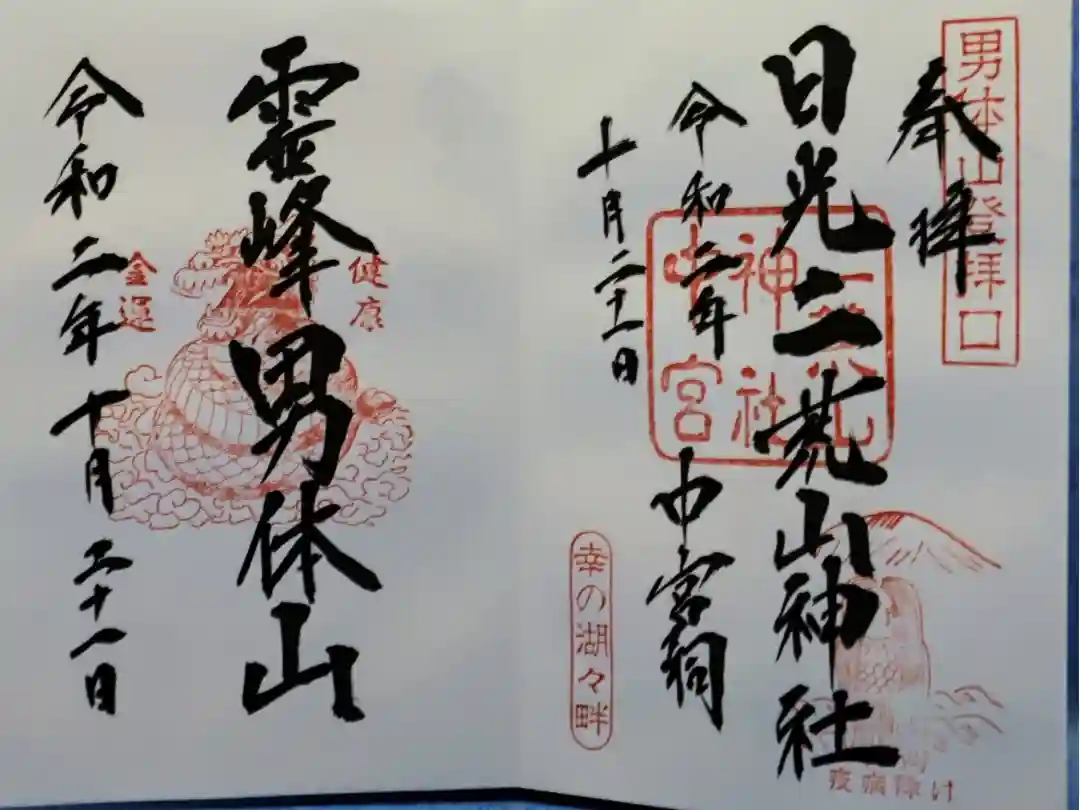 男体山登拝口
奉拝
日光二荒山神社
中宮祠
令和二年
十月二十一日
二荒山
神社
中宮
幸の湖々畔
疫病除け
霊峰男体山
健康
金運
令和二年十月二十一日